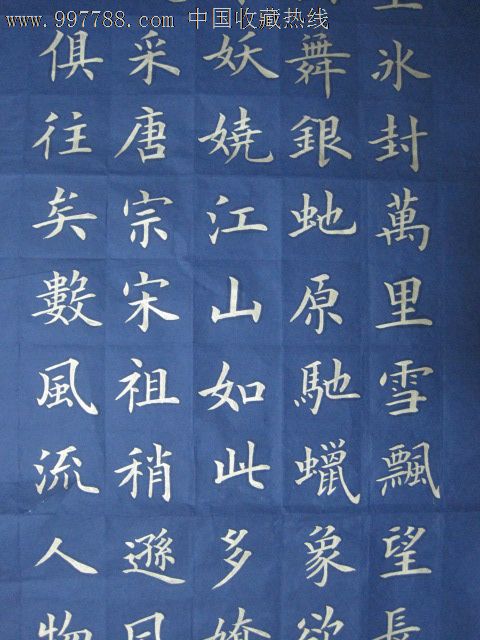 www.997788.com 中国收藏热线
氷封萬里雪飄望長
舞銀虵原馳蠟象欲
妖嬈江山如此多嬌
采唐宗宋祖稍遜風
俱往矣數風流人物